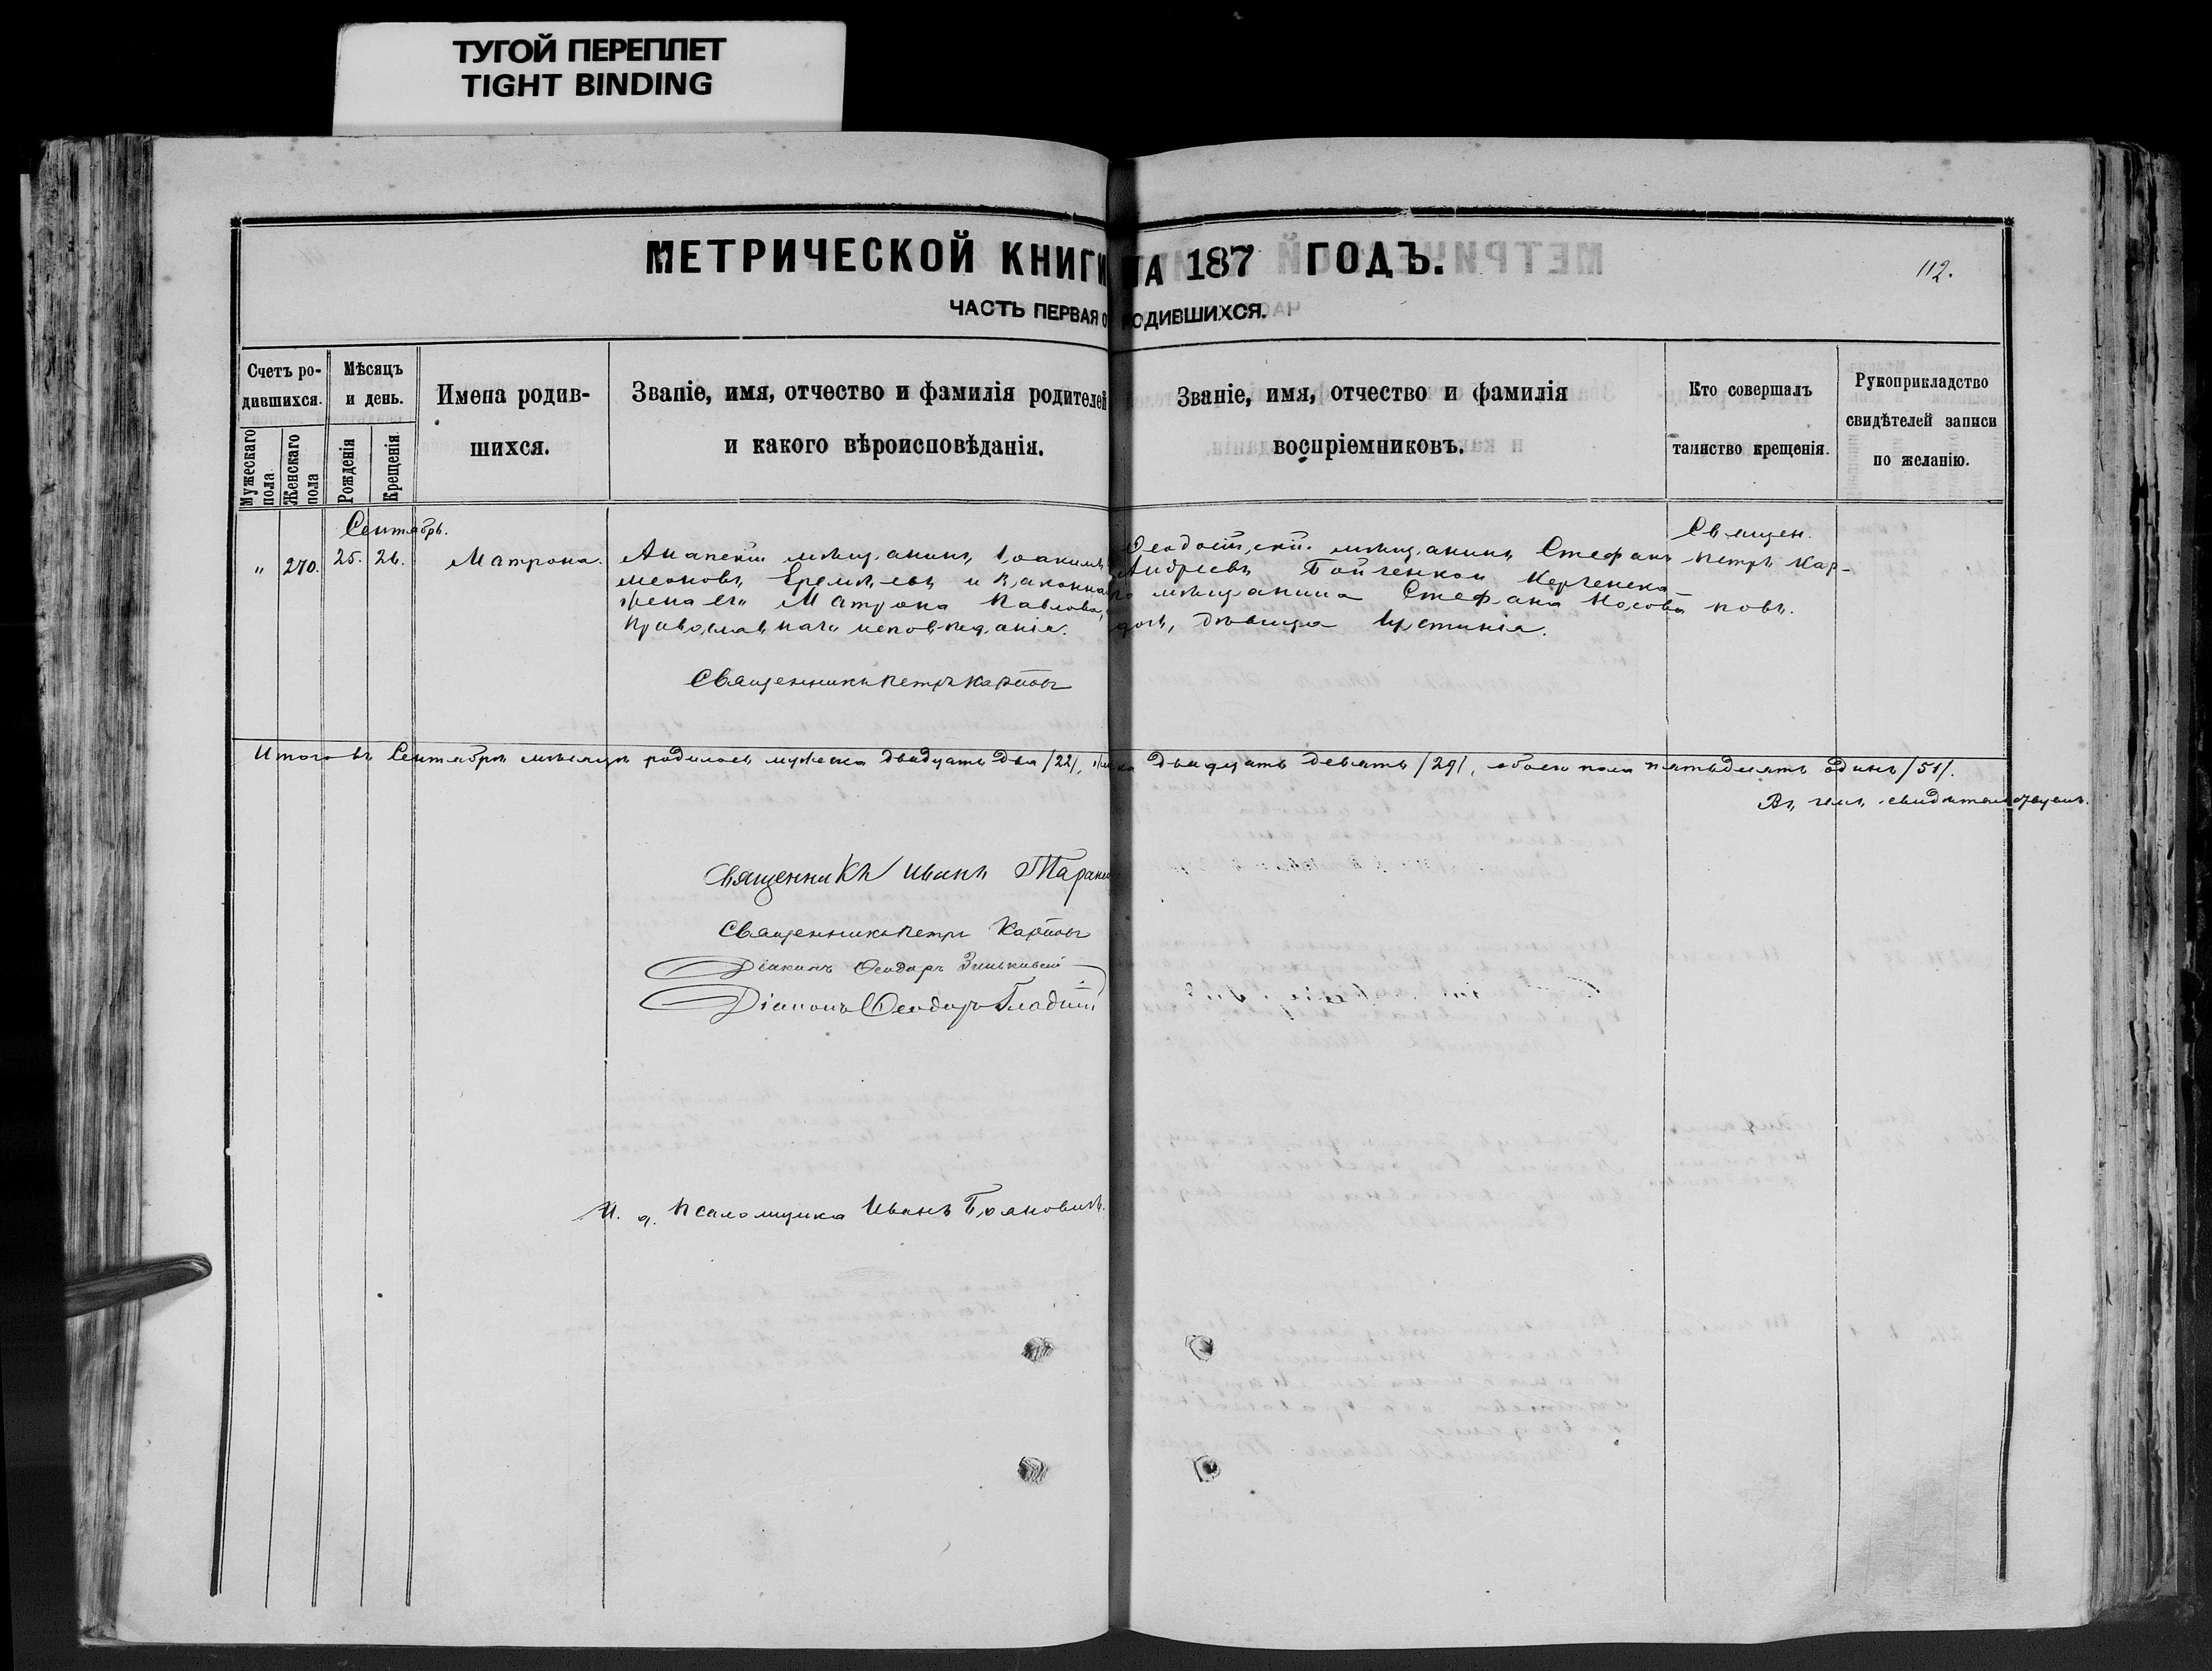 ТУГОЙ ПЕРЕПЛЕТ
TIGHT BINDING
МЕТРИЧЕСКОЙ КНИГИ НА 187 ГОДЪ.
112.
ЧАСТЬ ПЕРВАЯ О РОДИВШИХСЯ.
Счетъ ро-
дившихся.
Мужескаго пола
Женскаго пола
Мѣсяцъ
и день.
Рожденія
Крещенія.
Имена родив-
шихся.
Званіе, имя, отчество и фамилія родителей
и какого вѣроисповѣданія.
Званіе, имя, отчество и фамилія
воспріемниковъ.
Кто совершалъ
таинство крещенія.
Рукоприкладство
свидѣтелей записи
по желанію.
Сентябрь.
" 270. 25. 26. Матрона.
Анапскій мѣщанинъ Іоакимъ
меоновъ Еремѣевъ и законная
жена его Матрона Павлова,
православнаго исповѣданія.
Ѳеодосійскій мѣщанинъ Стефанъ
Андреевъ Бойченко и Керченска-
го мѣщанина Стефана Носова
дочь, дѣвица Іустинія.
Священ.
Петръ Кар-
повъ.
Священникъ Петръ Карповъ
Итого въ Сентябрѣ мѣсяцѣ родилось мужеска двадцать два /22/, двадцать девять /29/, обоего пола пятьдесятъ одинъ /51/.
Въ чемъ свидѣтельствуемъ.
Священникъ Иванъ
Священникъ Петръ Карповъ
Діаконъ Ѳеодоръ Зиньковскій
Діаконъ Ѳеодоръ Гладкій
И. д. псаломщика Иванъ Бояновичъ.